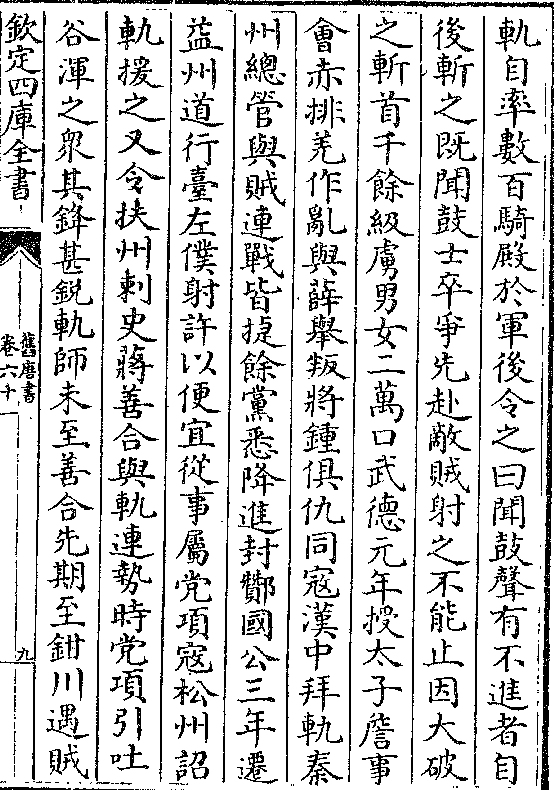 軌自率數百騎殿於軍後令之曰聞鼓聲有不進者自
後斬之既聞鼓士卒爭先赴敵賊射之不能止因大破
之斬首千餘級虜男女二萬口武德元年授太子詹事
會赤排羌作亂與薛舉叛將鍾俱仇同寇漢中拜軌秦
州總管與賊連戰皆捷餘黨悉降進封酇國公三年遷
益州道行臺左僕射許以便宜從事屬党項寇松州詔
軌援之又令扶州刺史蔣善合與軌連勢時党項引吐
谷渾之衆其鋒甚銳軌師未至善合先期至鉗川遇賊
欽定四庫全書
舊唐書
卷六十
九